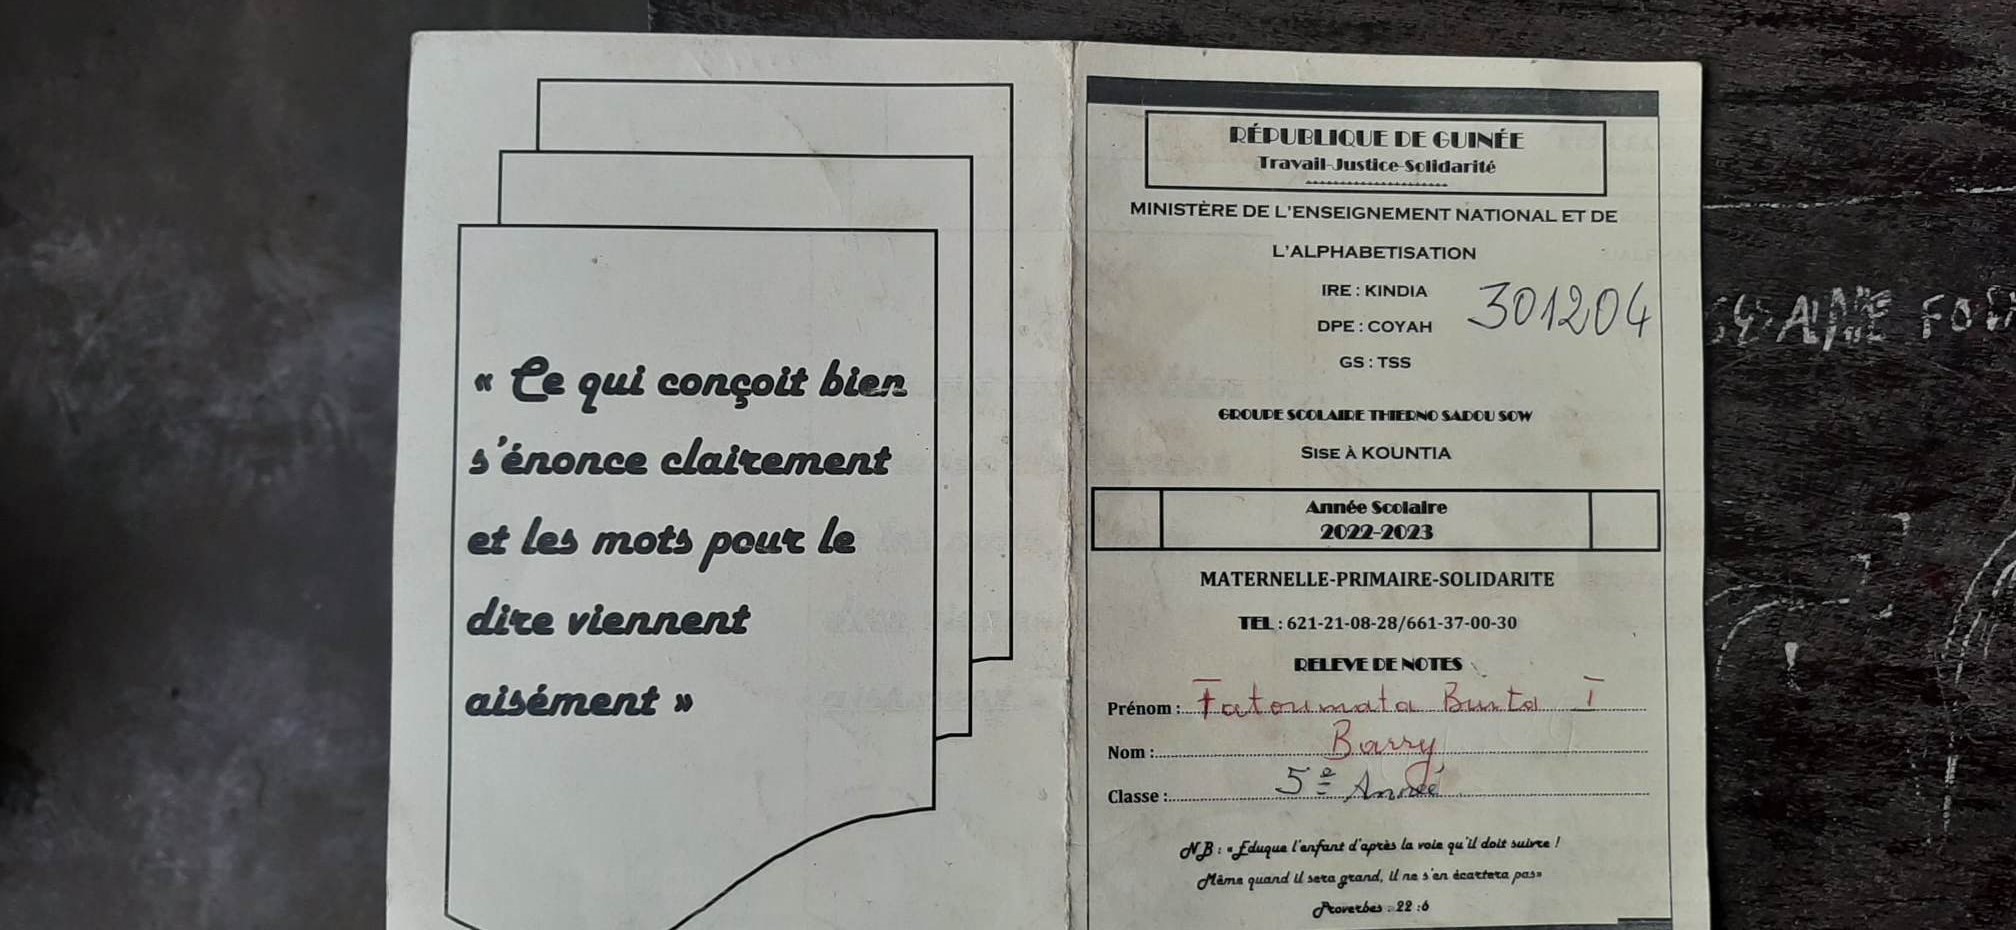 « Ce qui conçoit bien
s'énonce clairement
et les mots pour le
dire viennent
aisément »
RÉPUBLIQUE DE GUINÉE
Travail-Justice-Solidarité
MINISTÈRE DE L'ENSEIGNEMENT NATIONAL ET DE
L'ALPHABETISATION
IRE : KINDIA
301204
DPE : COYAH
GS : TSS
GROUPE SCOLAIRE THIERNO SADOU SOW
SISE À KOUNTIA
Année Scolaire
2022-2023
MATERNELLE-PRIMAIRE-SOLIDARITE
TEL : 621-21-08-28/661-37-00-30
RELEVE DE NOTES
Prénom : Fatoumata Binta I
Nom : Barry
Classe : 5e Année
NB : « Eduque l'enfant d'après la voie qu'il doit suivre !
Même quand il sera grand, il ne s'en écartera pas»
Proverbes : 22 :6